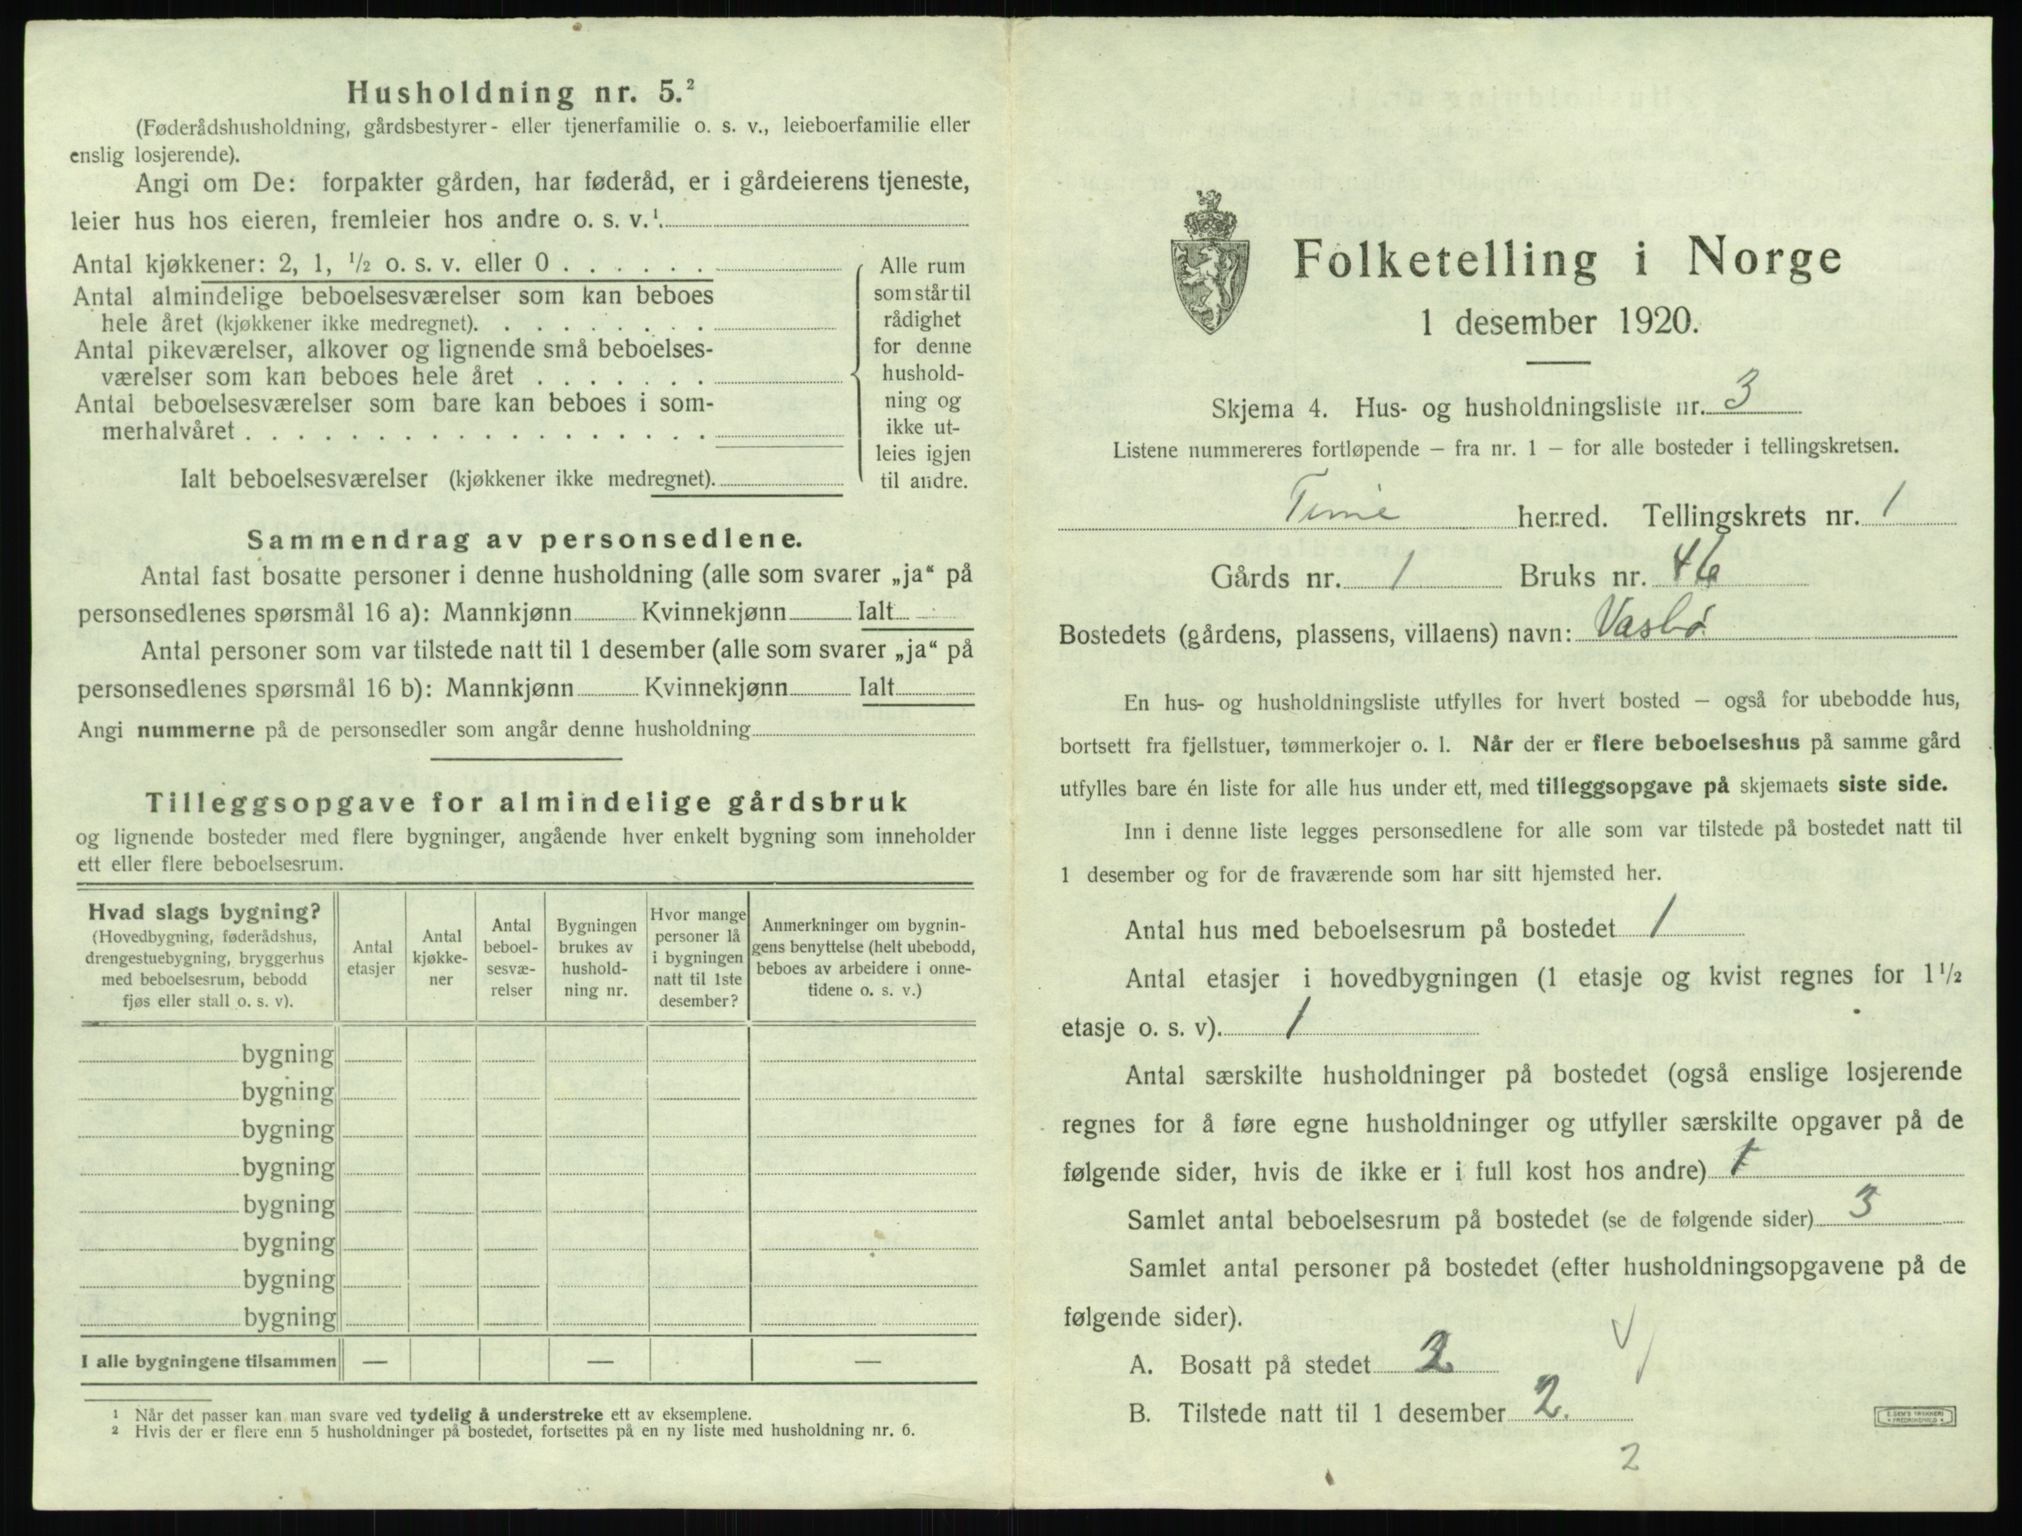 Husholdning nr. 5.²
(Føderådshusholdning, gårdsbestyrer- eller tjenerfamilie o. s. v., leieboerfamilie eller
enslig losjerende).
Angi om De: forpakter gården, har føderåd, er i gårdeierens tjeneste,
leier hus hos eieren, fremleier hos andre o. s. v.¹
Antal kjøkkener: 2, 1, ½ o. s. v. eller 0 . . . . . .
Antal almindelige beboelsesværelser som kan beboes
hele året (kjøkkener ikke medregnet). . . . . . . . .
Antal pikeværelser, alkover og lignende små beboelses-
værelser som kan beboes hele året . . . . . . .
Antal beboelsesværelser som bare kan beboes i som-
merhalvåret . . . . . . . . . . . . . . . . . .
Ialt beboelsesværelser (kjøkkener ikke medregnet).
Alle rum
som står til
rådighet
for denne
hushold-
ning og
ikke ut-
leies igjen
til andre.
Sammendrag av personsedlene.
Antal fast bosatte personer i denne husholdning (alle som svarer „ja“ på
personsedlenes spørsmål 16 a): Mannkjønn Kvinnekjønn Ialt
Antal personer som var tilstede natt til 1 desember (alle som svarer „ja“ på
personsedlenes spørsmål 16 b): Mannkjønn Kvinnekjønn Ialt
Angi nummerne på de personsedler som angår denne husholdning
Tilleggsopgave for almindelige gårdsbruk
og lignende bosteder med flere bygninger, angående hver enkelt bygning som inneholder
ett eller flere beboelsesrum.
Hvad slags bygning?
(Hovedbygning, føderådshus,
drengestuebygning, bryggerhus
med beboelsesrum, bebodd
fjøs eller stall o. s. v).
Antal
etasjer
Antal
kjøkke-
ner
Antal
beboel-
sesvæ-
relser
Bygningen
brukes av
hushold-
ning nr.
Hvor mange
personer lå
i bygningen
natt til 1ste
desember?
Anmerkninger om bygnin-
gens benyttelse (helt ubebodd,
beboes av arbeidere i onne-
tidene o. s. v.)
bygning
bygning
bygning
bygning
bygning
bygning
bygning
bygning
I alle bygningene tilsammen — — —
¹ Når det passer kan man svare ved tydelig å understreke ett av eksemplene.
² Hvis der er flere enn 5 husholdninger på bostedet, fortsettes på en ny liste med husholdning nr. 6.
Folketelling i Norge
1 desember 1920.
Skjema 4. Hus- og husholdningsliste nr. 3
Listene nummereres fortløpende — fra nr. 1 — for alle bosteder i tellingskretsen.
Time herred. Tellingskrets nr. 1
Gårds nr. 1 Bruks nr. 46
Bostedets (gårdens, plassens, villaens) navn: Vasbø
En hus- og husholdningsliste utfylles for hvert bosted — også for ubebodde hus,
bortsett fra fjellstuer, tømmerkojer o. l. Når der er flere beboelseshus på samme gård
utfylles bare én liste for alle hus under ett, med tilleggsopgave på skjemaets siste side.
Inn i denne liste legges personsedlene for alle som var tilstede på bostedet natt til
1 desember og for de fraværende som har sitt hjemsted her.
Antal hus med beboelsesrum på bostedet 1
Antal etasjer i hovedbygningen (1 etasje og kvist regnes for 1½
etasje o. s. v). 1
Antal særskilte husholdninger på bostedet (også enslige losjerende
regnes for å føre egne husholdninger og utfyller særskilte opgaver på de
følgende sider, hvis de ikke er i full kost hos andre) 1
Samlet antal beboelsesrum på bostedet (se de følgende sider) 3
Samlet antal personer på bostedet (efter husholdningsopgavene på de
følgende sider).
A. Bosatt på stedet 2
B. Tilstede natt til 1 desember 2.
2